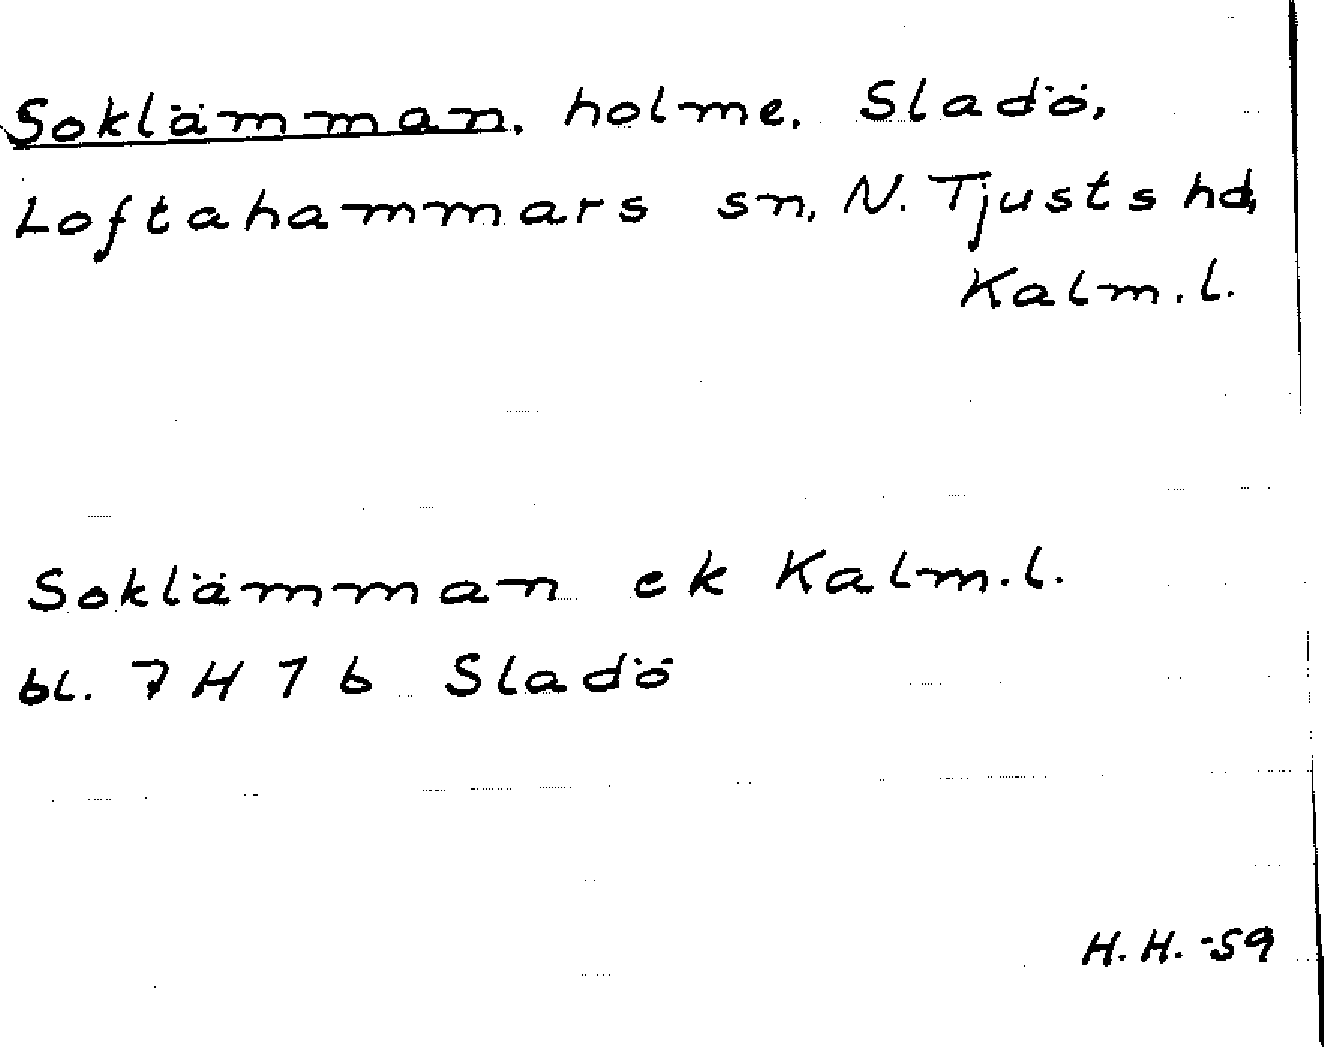 Soklämman, holme, Sladö,
Loftahammars sn, N. Tjusts hd,
Kalm. l.
Soklämman ek Kalm. l.
bl. 7 H 7 b Sladö
H. H. -59